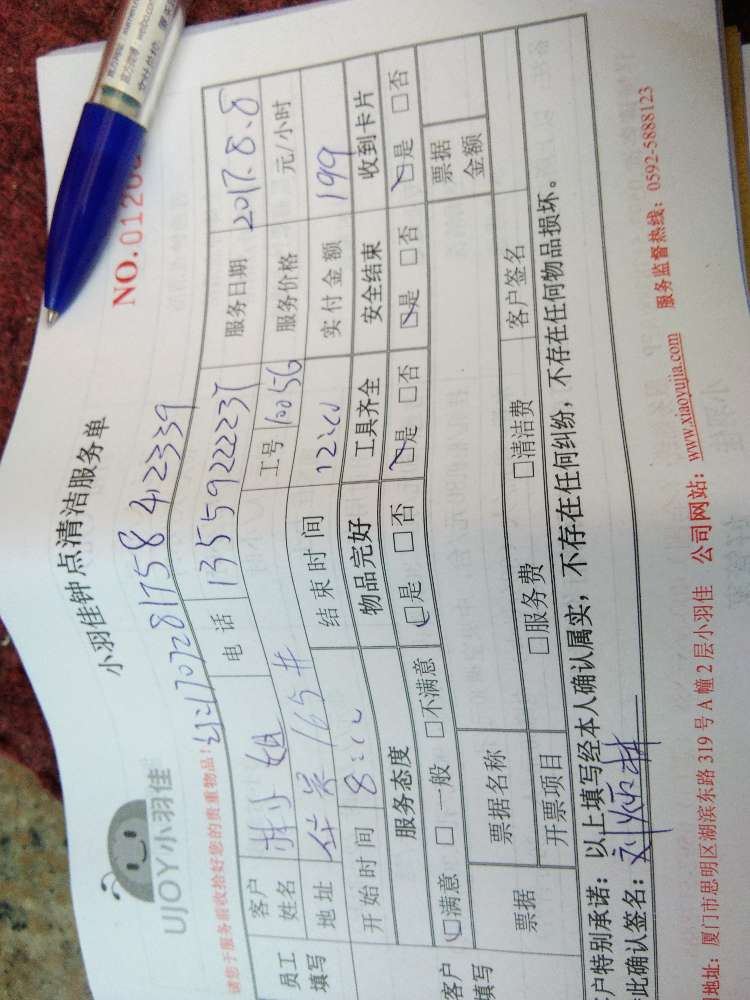 UJOY小羽佳
小羽佳钟点清洁服务单
NO.0120
请您于服务前收拾好您的贵重物品!
170728175842339
员工填写
客户姓名 小姐 电话 13559222237 服务日期 2017.8.8
地址 165# 工号 10056 服务价格 元/小时
开始时间 8: 结束时间 12: 实付金额 199
服务态度 物品完好 工具齐全 安全结束 收到卡片
客户填写
□满意 □一般 □不满意 □是 □否 □是 □否 □是 □否 □是 □否
票据 票据名称 票据金额
开票项目 □服务费 □清洁费 客户签名
户特别承诺:以上填写经本人确认属实,不存在任何纠纷,不存在任何物品损坏。
此确认签名:刘
地址:厦门市思明区湖滨东路319号A幢2层小羽佳 公司网站:www.xiaoyujia.com 服务监督热线:0592-5888123